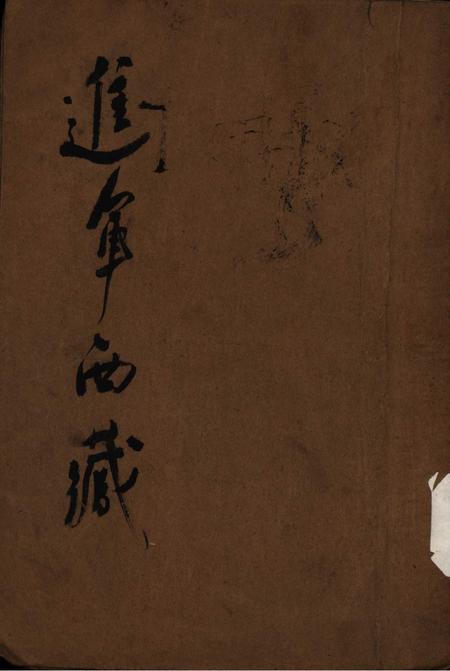 進軍西藏